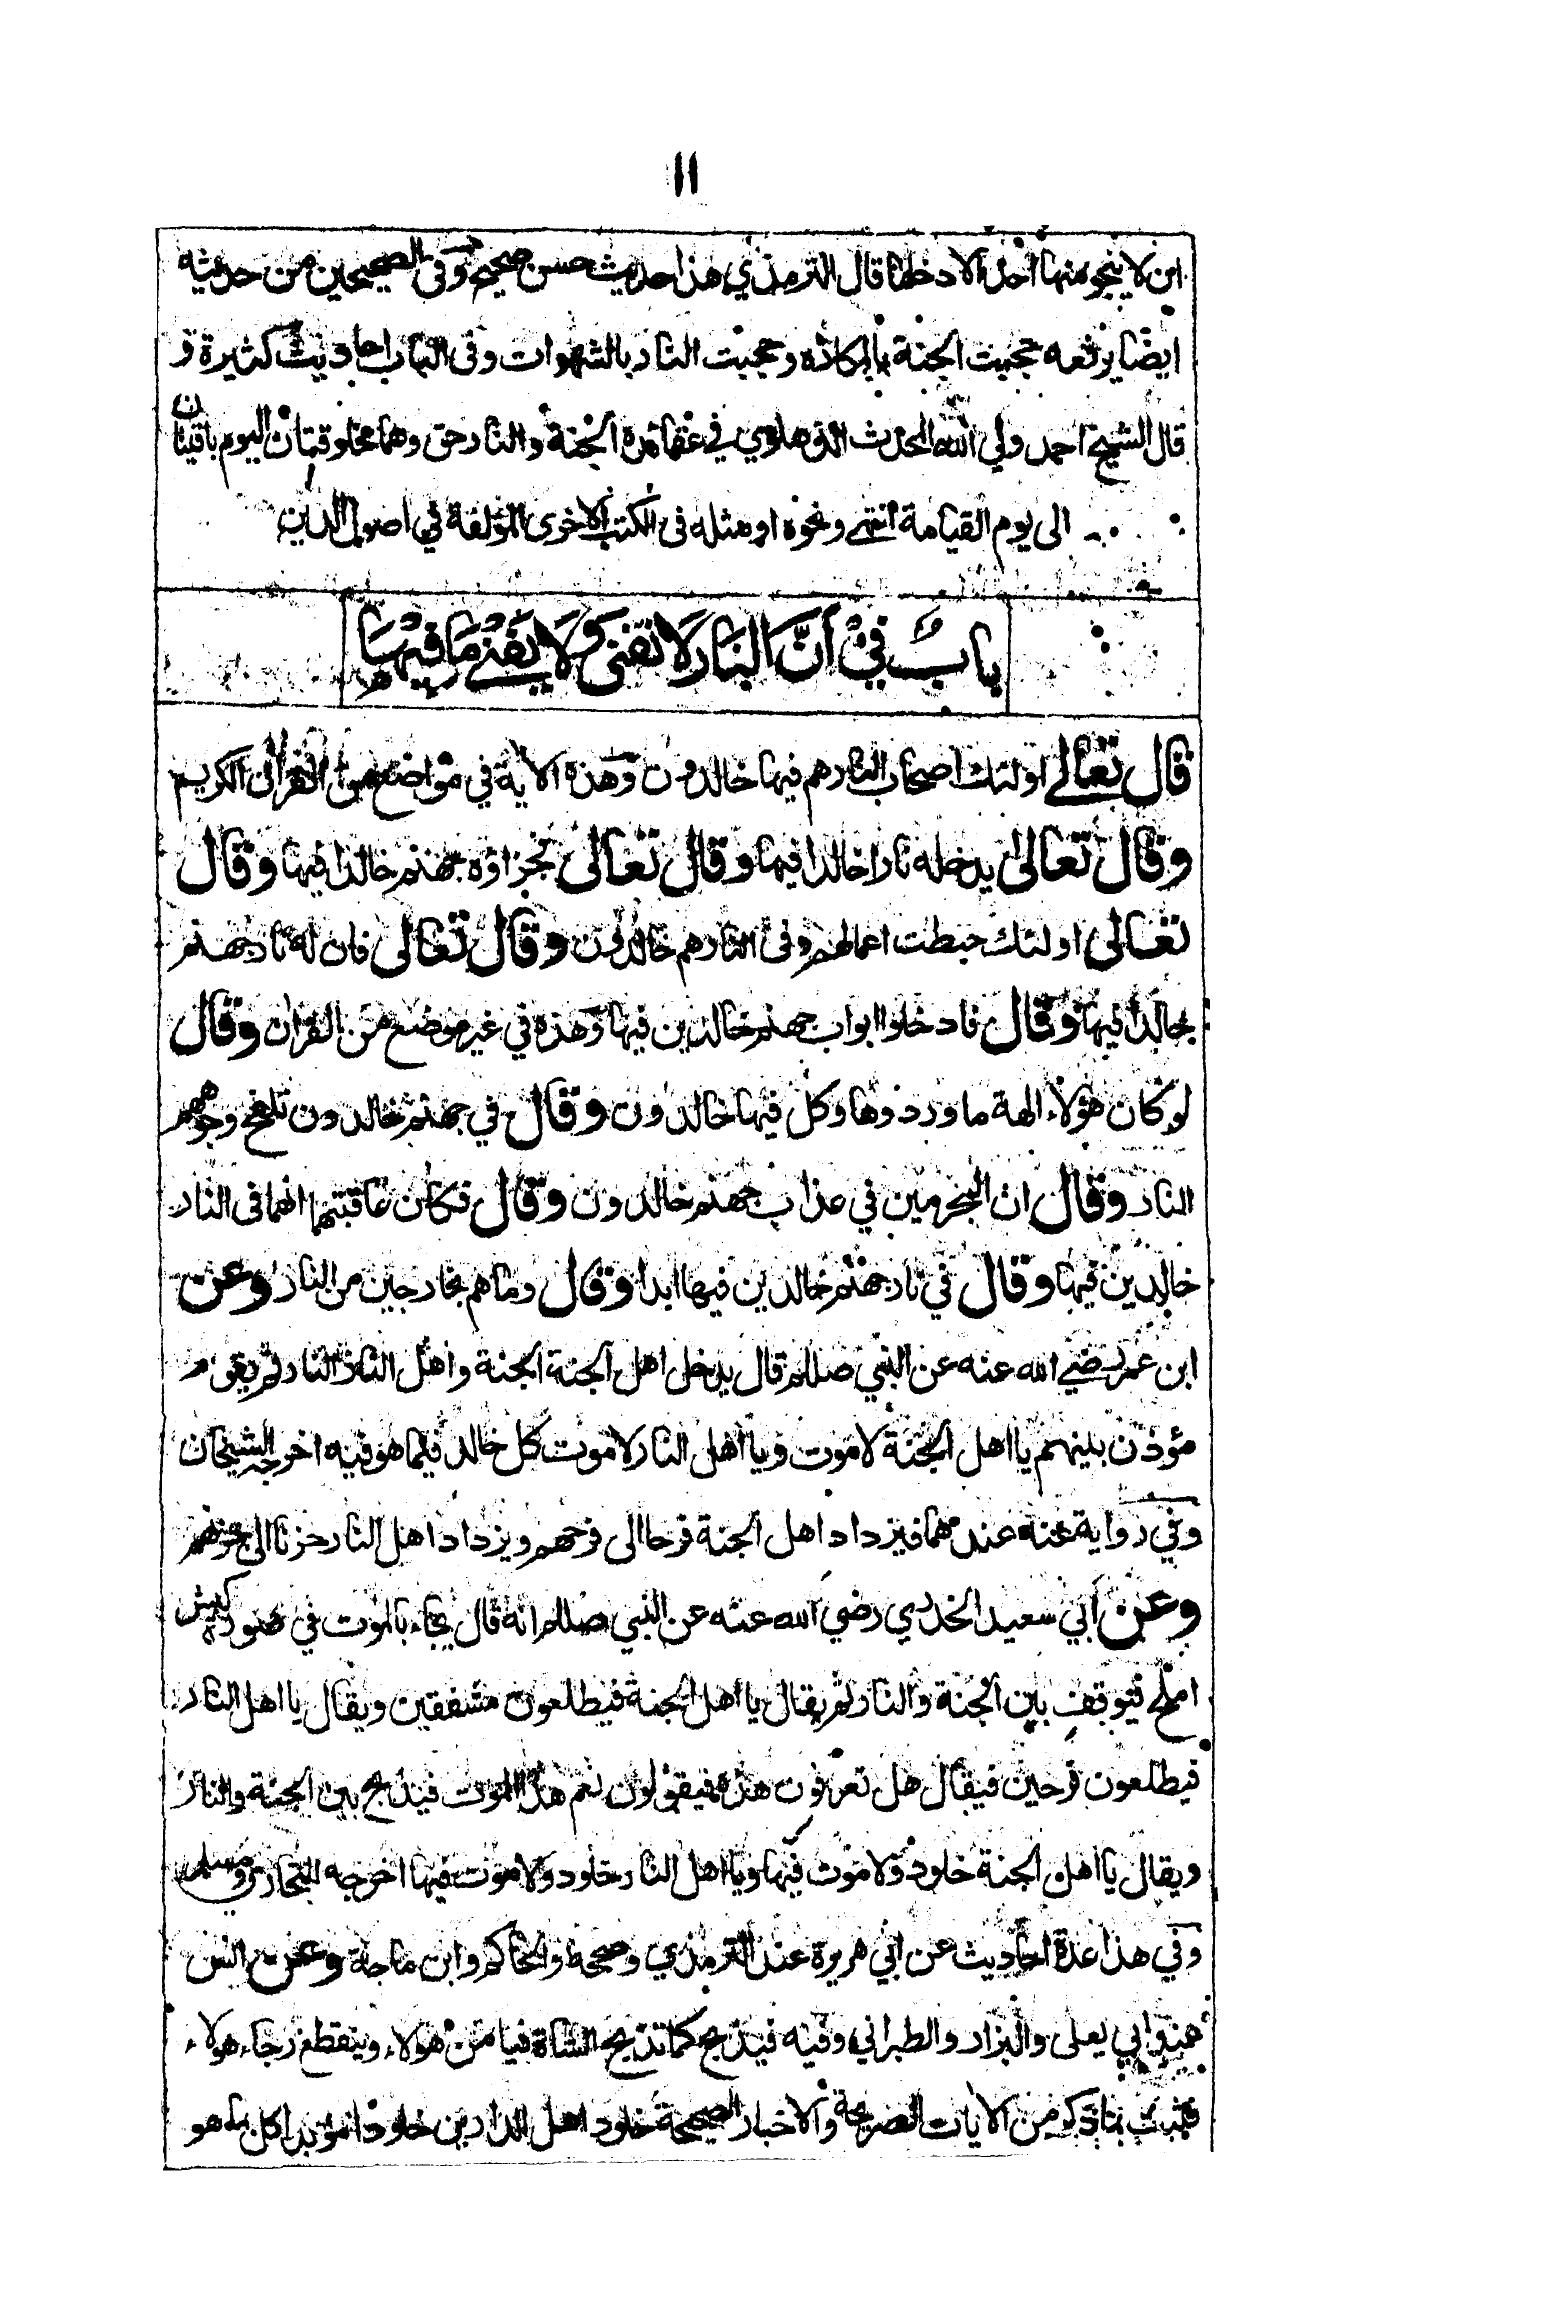 ١١
ان لا ينجو منها احد الا دخلها قال الترمذي هذا حديث حسن صحيح وفى الصحيحين من حديثه
ايضا يرفعه حجبت الجنة بالمكاره وحجبت النار بالشهوات وفى الباب احاديث كثيرة و
قال الشيخ احمد ولي الله المحدث الدهلوي في عقائده الجنة والنار حق وهما مخلوقتان اليوم باقيتان
الى يوم القيامة انتهى ونحوه او مثله فى الكتب الاخرى المؤلفة في اصول الدين
باب في أن النار لا تفنى ولا يفنى ما فيها
قال تعالى اولئك اصحاب النار هم فيها خالدون وهذه الاية في مواضع من القرآن الكريم
وقال تعالى يدخله نارا خالدا فيها وقال تعالى فجزاؤه جهنم خالدا فيها وقال
تعالى اولئك حبطت اعمالهم وفى النار هم خالدون وقال تعالى فان له نار جهنم
خالدا فيها وقال فادخلوا ابواب جهنم خالدين فيها وهذه في غير موضع من القرآن وقال
لو كان هؤلاء الهة ما وردوها وكل فيها خالدون وقال في جهنم خالدون تلفح وجوههم
النار وقال ان المجرمين في عذاب جهنم خالدون وقال فكان عاقبتهما انهما فى النار
خالدين فيها وقال في نار جهنم خالدين فيها ابدا وقال وما هم بخارجين من النار وعن
ابن عمر رضي الله عنه عن النبي صللم قال يدخل اهل الجنة الجنة واهل النار النار ثم يقوم
مؤذن بينهم يا اهل الجنة لا موت ويا اهل النار لا موت كل خالد فيما هو فيه اخرجه الشيخان
وفي رواية عنه عندهما فيزداد اهل الجنة فرحا الى فرحهم ويزداد اهل النار حزنا الى حزنهم
وعن أبي سعيد الخدري رضي الله عنه عن النبي صللم انه قال يجاء بالموت في صورة كبش
املح فيوقف بين الجنة والنار ثم يقال يا اهل الجنة فيطلعون مشفقين ويقال يا اهل النار
فيطلعون فرحين فيقال هل تعرفون هذا فيقولون نعم هذا الموت فيذبح بين الجنة والنار
ويقال يا اهل الجنة خلود ولا موت فيها ويا اهل النار خلود ولا موت فيها اخرجه البخاري ومسلم
وفي هذا عدة احاديث عن ابي هريرة عند الترمذي وصححه والحاكم وابن ماجة وعن انس
عند ابي يعلى والبزار والطبراني وفيه فيذبح كما تذبح الشاة فيامن هؤلاء وينقطع رجاء هولاء
فثبت بما ذكر من الايات الصريحة والاخبار الصحيحة خلود اهل الدارين خلودا مؤبدا كل بما هو